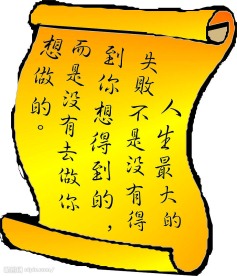 人生最大的
失败不是没有得
到你想得到的，
而是没有去做你
想做的。